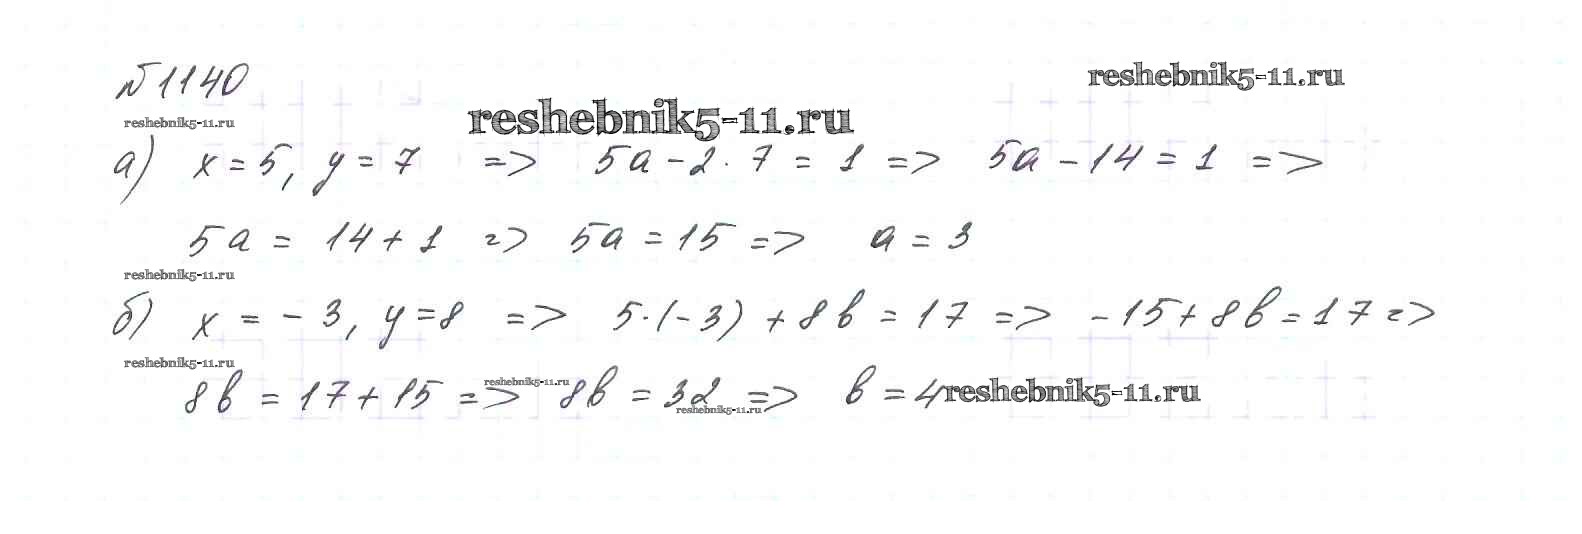 №1140
reshebnik5-11.ru
reshebnik5-11.ru
reshebnik5-11.ru
а) x = 5, y = 7 => 5a - 2 · 7 = 1 => 5a - 14 = 1 =>
5a = 14 + 1 => 5a = 15 => a = 3
reshebnik5-11.ru
б) x = - 3, y = 8 => 5 · (- 3) + 8b = 17 => - 15 + 8b = 17 =>
reshebnik5-11.ru
8b = 17 + 15 => 8b = 32 => b = 4
reshebnik5-11.ru
reshebnik5-11.ru
reshebnik5-11.ru